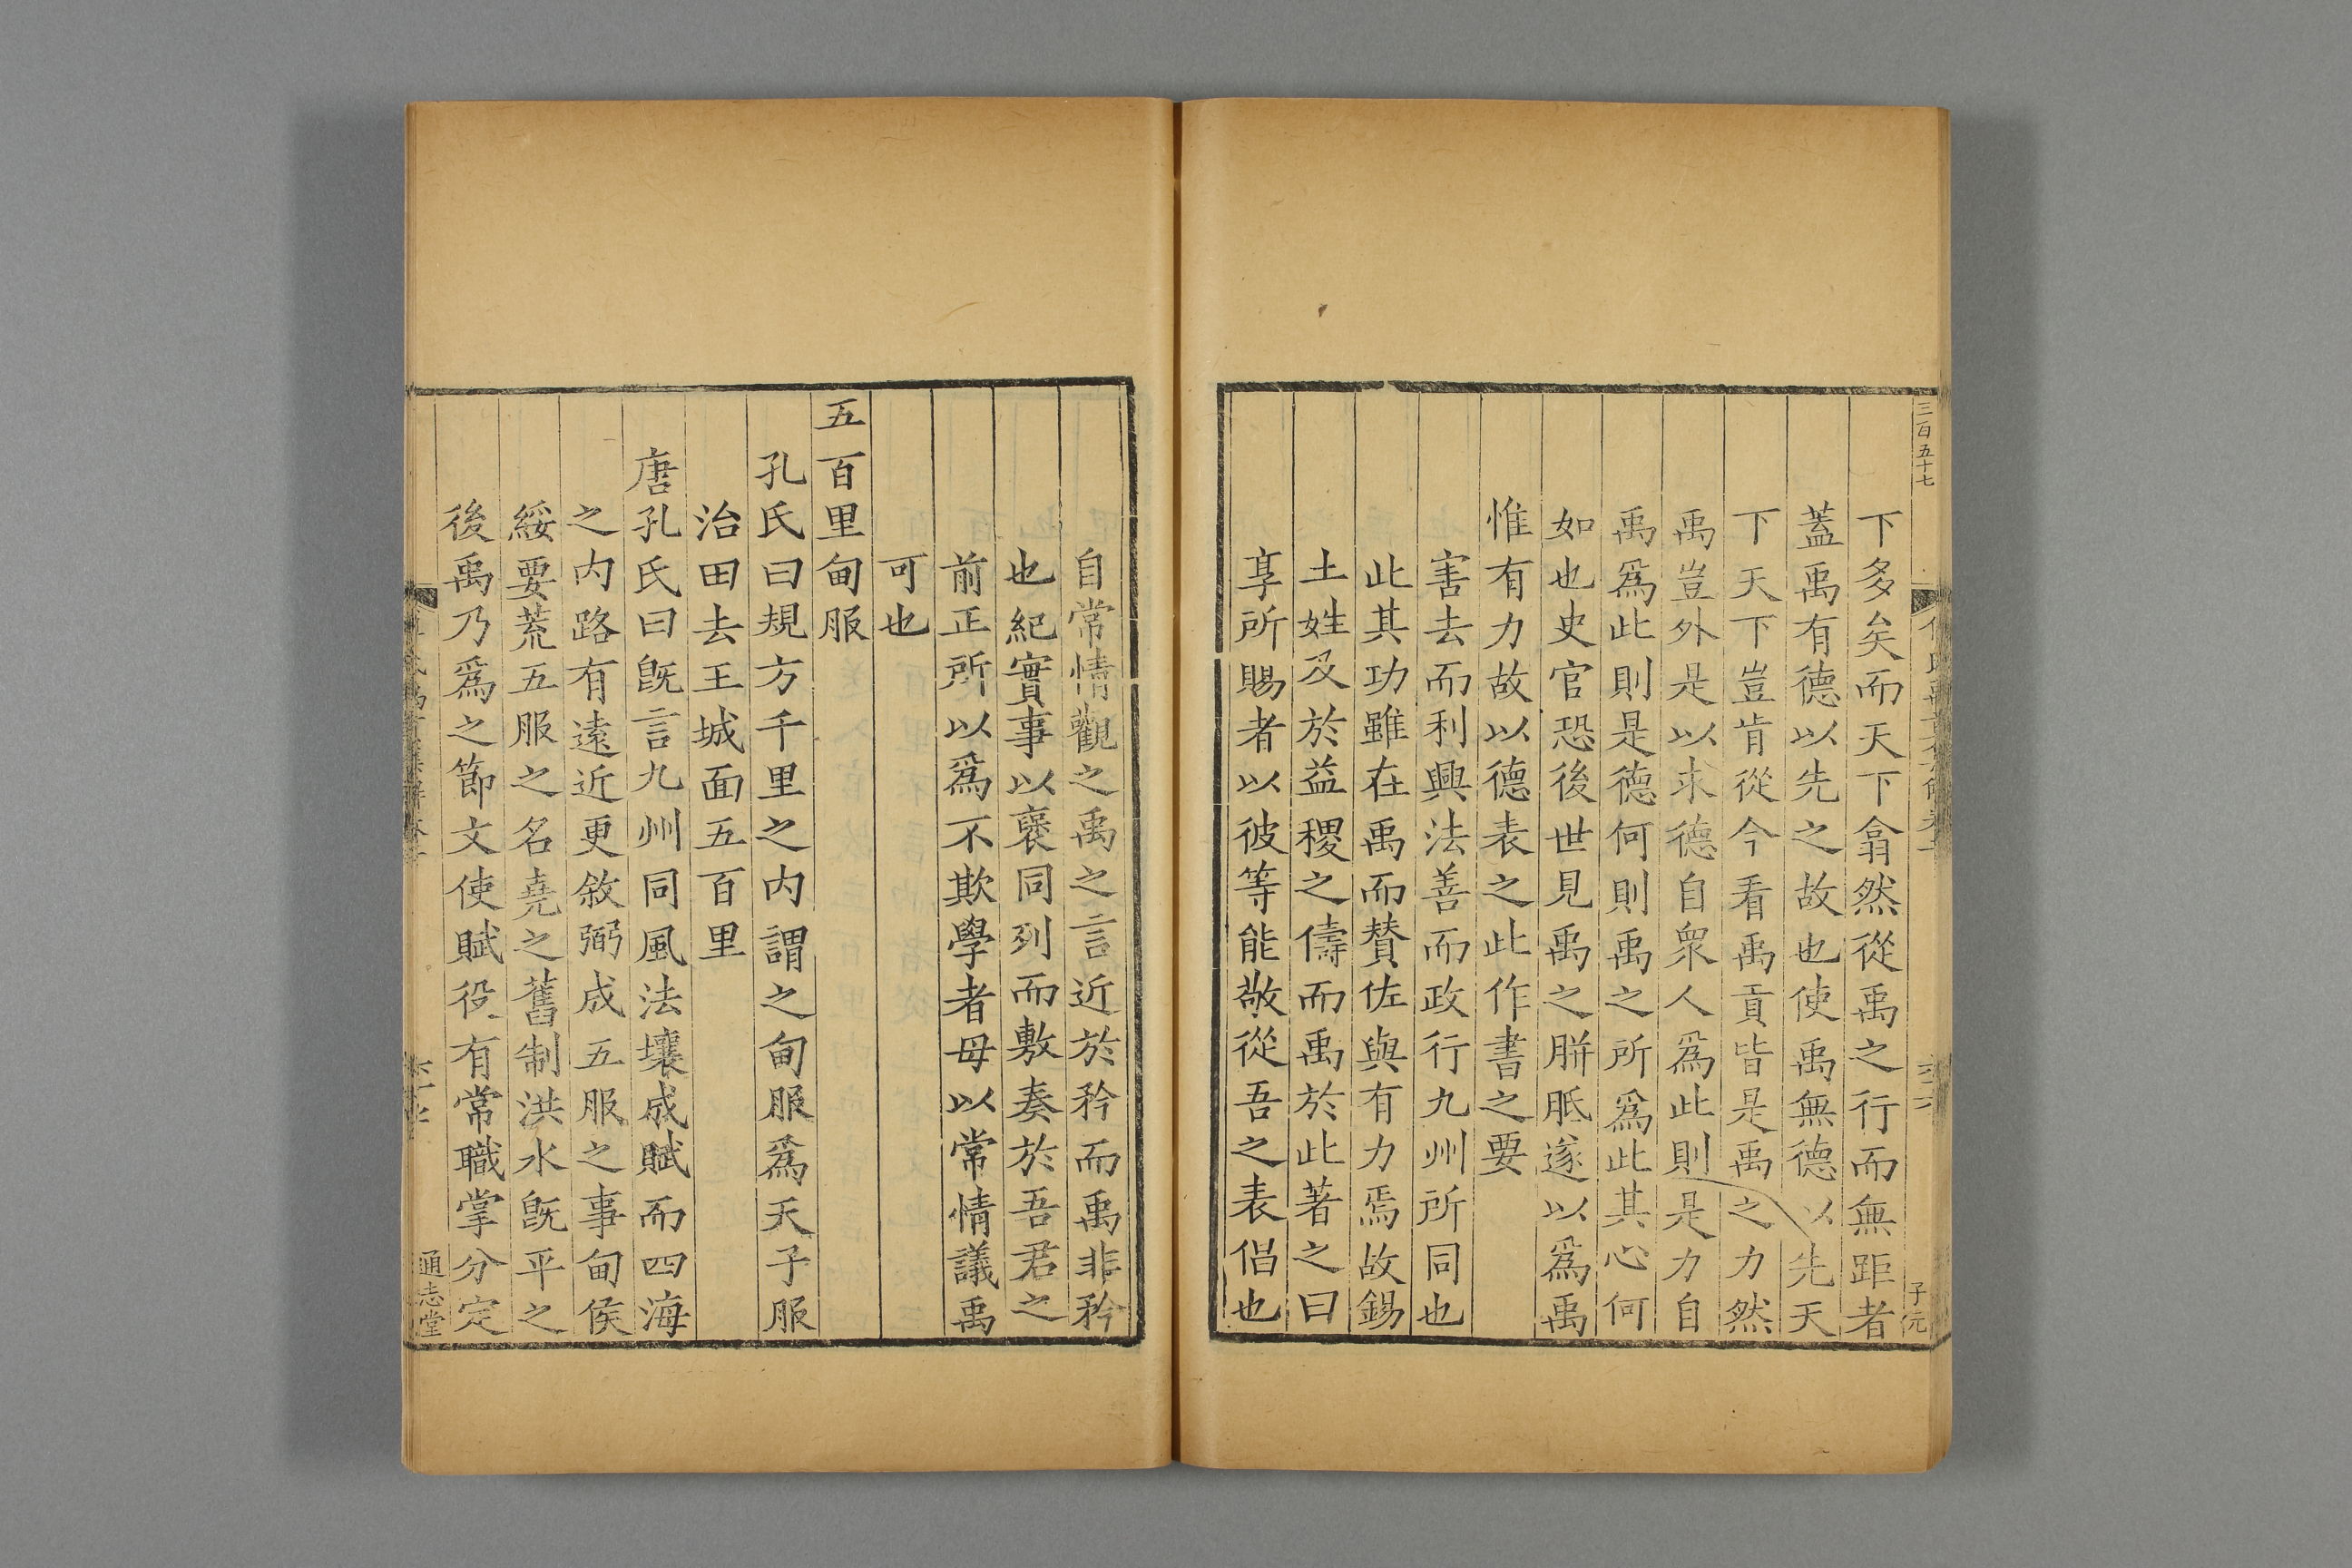 三百五十七
子元
下多矣而天下翕然從禹之行而無距者
蓋禹有德以先之故也使禹無德以先天
下天下豈肯從今看禹貢皆是禹之力然
禹豈外是以求德自衆人爲此則是力自
禹爲此則是德何則禹之所爲此其心何
如也史官恐後世見禹之胼胝遂以爲禹
惟有力故以德表之此作書之要
害去而利興法善而政行九州所同也
此其功雖在禹而賛佐與有力焉故錫
土姓及於益稷之儔而禹於此著之曰
享所賜者以彼等能敬從吾之表倡也
自常情觀之禹之言近於矜而禹非矜
也紀實事以襃同列而敷奏於吾君之
前正所以爲不欺學者毋以常情議禹
可也
五百里甸服
孔氏曰規方千里之内謂之甸服爲天子服
治田去王城面五百里
唐孔氏曰旣言九州同風法壤成賦而四海
之内路有遠近更敘弼成五服之事甸侯
綏要荒五服之名堯之舊制洪水旣平之
後禹乃爲之節文使賦役有常職掌分定
通志堂